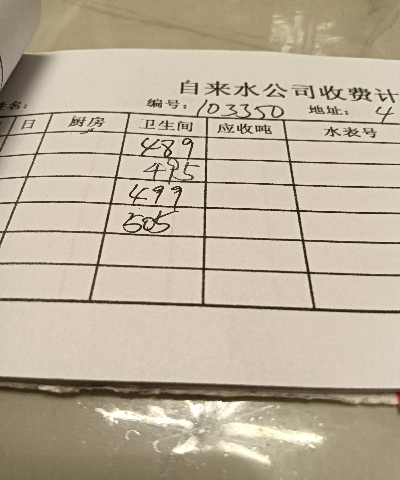 自来水公司收费计
姓名: 编号: 103350 地址: 4
日 厨房 卫生间 应收吨 水表号
489
495
499
505